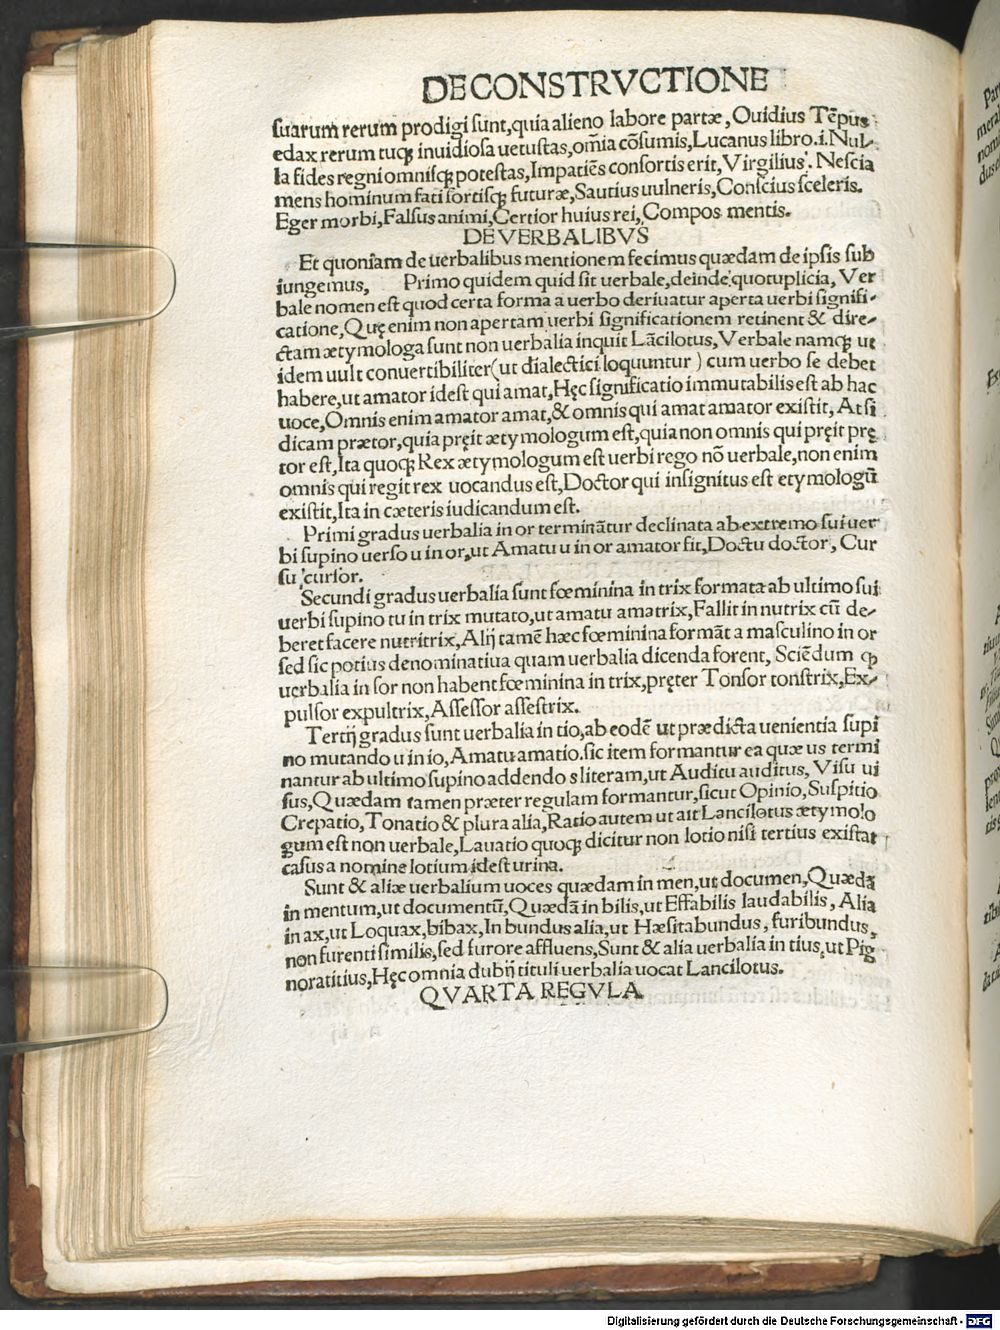 DE CONSTRVCTIONE
suarum rerum prodigi sunt,quia alieno labore partæ,Ouidius Tẽpus
edax rerum tuqꝫ inuidiosa uetustas,om̃ia cõsumis,Lucanus libro.i.Nul-
la fides regni omnisqꝫ potestas,Impatiẽs consortis erit,Virgilius. Nescia
mens hominum fati sortisqꝫ futuræ,Sautius uulneris,Conscius sceleris.
Eger morbi,Falsus animi,Certior huius rei,Compos mentis.
DE VERBALIBVS
Et quoniam de uerbalibus mentionem fecimus quædam de ipsis sub
iungemus, Primo quidem quid sit uerbale,deinde quotuplicia, Ver
bale nomen est quod certa forma a uerbo deriuatur aperta uerbi signifi-
catione,Quę enim non apertam uerbi significationem retinent & dire-
ctam ætymologa sunt non uerbalia inquit Lãcilotus,Verbale namqꝫ ut
idem uult conuertibiliter(ut dialectici loquuntur) cum uerbo se debet
habere,ut amator idest qui amat,Hęc significatio immutabilis est ab hac
uoce,Omnis enim amator amat,& omnis qui amat amator existit, At si
dicam prætor,quia pręit ætymologum est,quia non omnis qui pręit prę
tor est,Ita quoqꝫ Rex ætymologum est uerbi rego nõ uerbale,non enim
omnis qui regit rex uocandus est,Doctor qui insignitus est etymologũ
existit,Ita in cæteris iudicandum est.
Primi gradus uerbalia in or terminãtur declinata ab extremo sui uer
bi supino uerso u in or,ut Amatu u in or amator fit,Doctu doctor, Cur
su cursor.
Secundi gradus uerbalia sunt fœminina in trix formata ab ultimo sui
uerbi supino tu in trix mutato,ut amatu amatrix,Fallit in nutrix cũ de-
beret facere nutritrix,Alij tamẽ hæc fœminina formãt a masculino in or
sed sic potius denominatiua quam uerbalia dicenda forent, Sciẽdum ꝙ
uerbalia in sor non habent fœminina in trix,pręter Tonsor tonstrix,Ex-
pulsor expultrix,Assessor assestrix.
Tertij gradus sunt uerbalia in tio,ab eodẽ ut prædicta uenientia supi
no mutando u in io,Amatu amatio.sic item formantur ea quæ us termi
nantur ab ultimo supino addendo s literam,ut Auditu auditus, Visu ui
sus,Quædam tamen præter regulam formantur,sicut Opinio,Suspitio
Crepatio,Tonatio & plura alia,Ratio autem ut ait Lancilotus ætymolo
gum est non uerbale,Lauatio quoqꝫ dicitur non lotio nisi tertius existat
casus a nomine lotium idest urina.
Sunt & aliæ uerbalium uoces quædam in men,ut documen,Quædã
in mentum,ut documentũ,Quædã in bilis,ut Effabilis laudabilis, Alia
in ax,ut Loquax,bibax,In bundus alia,ut Hæsitabundus, furibundus,
non furenti similis,sed furore affluens,Sunt & alia uerbalia in tius,ut Pig
noratitius,Hęc omnia dubij tituli uerbalia uocat Lancilotus.
QVARTA REGVLA
Digitalisierung gefördert durch die Deutsche Forschungsgemeinschaft - DFG